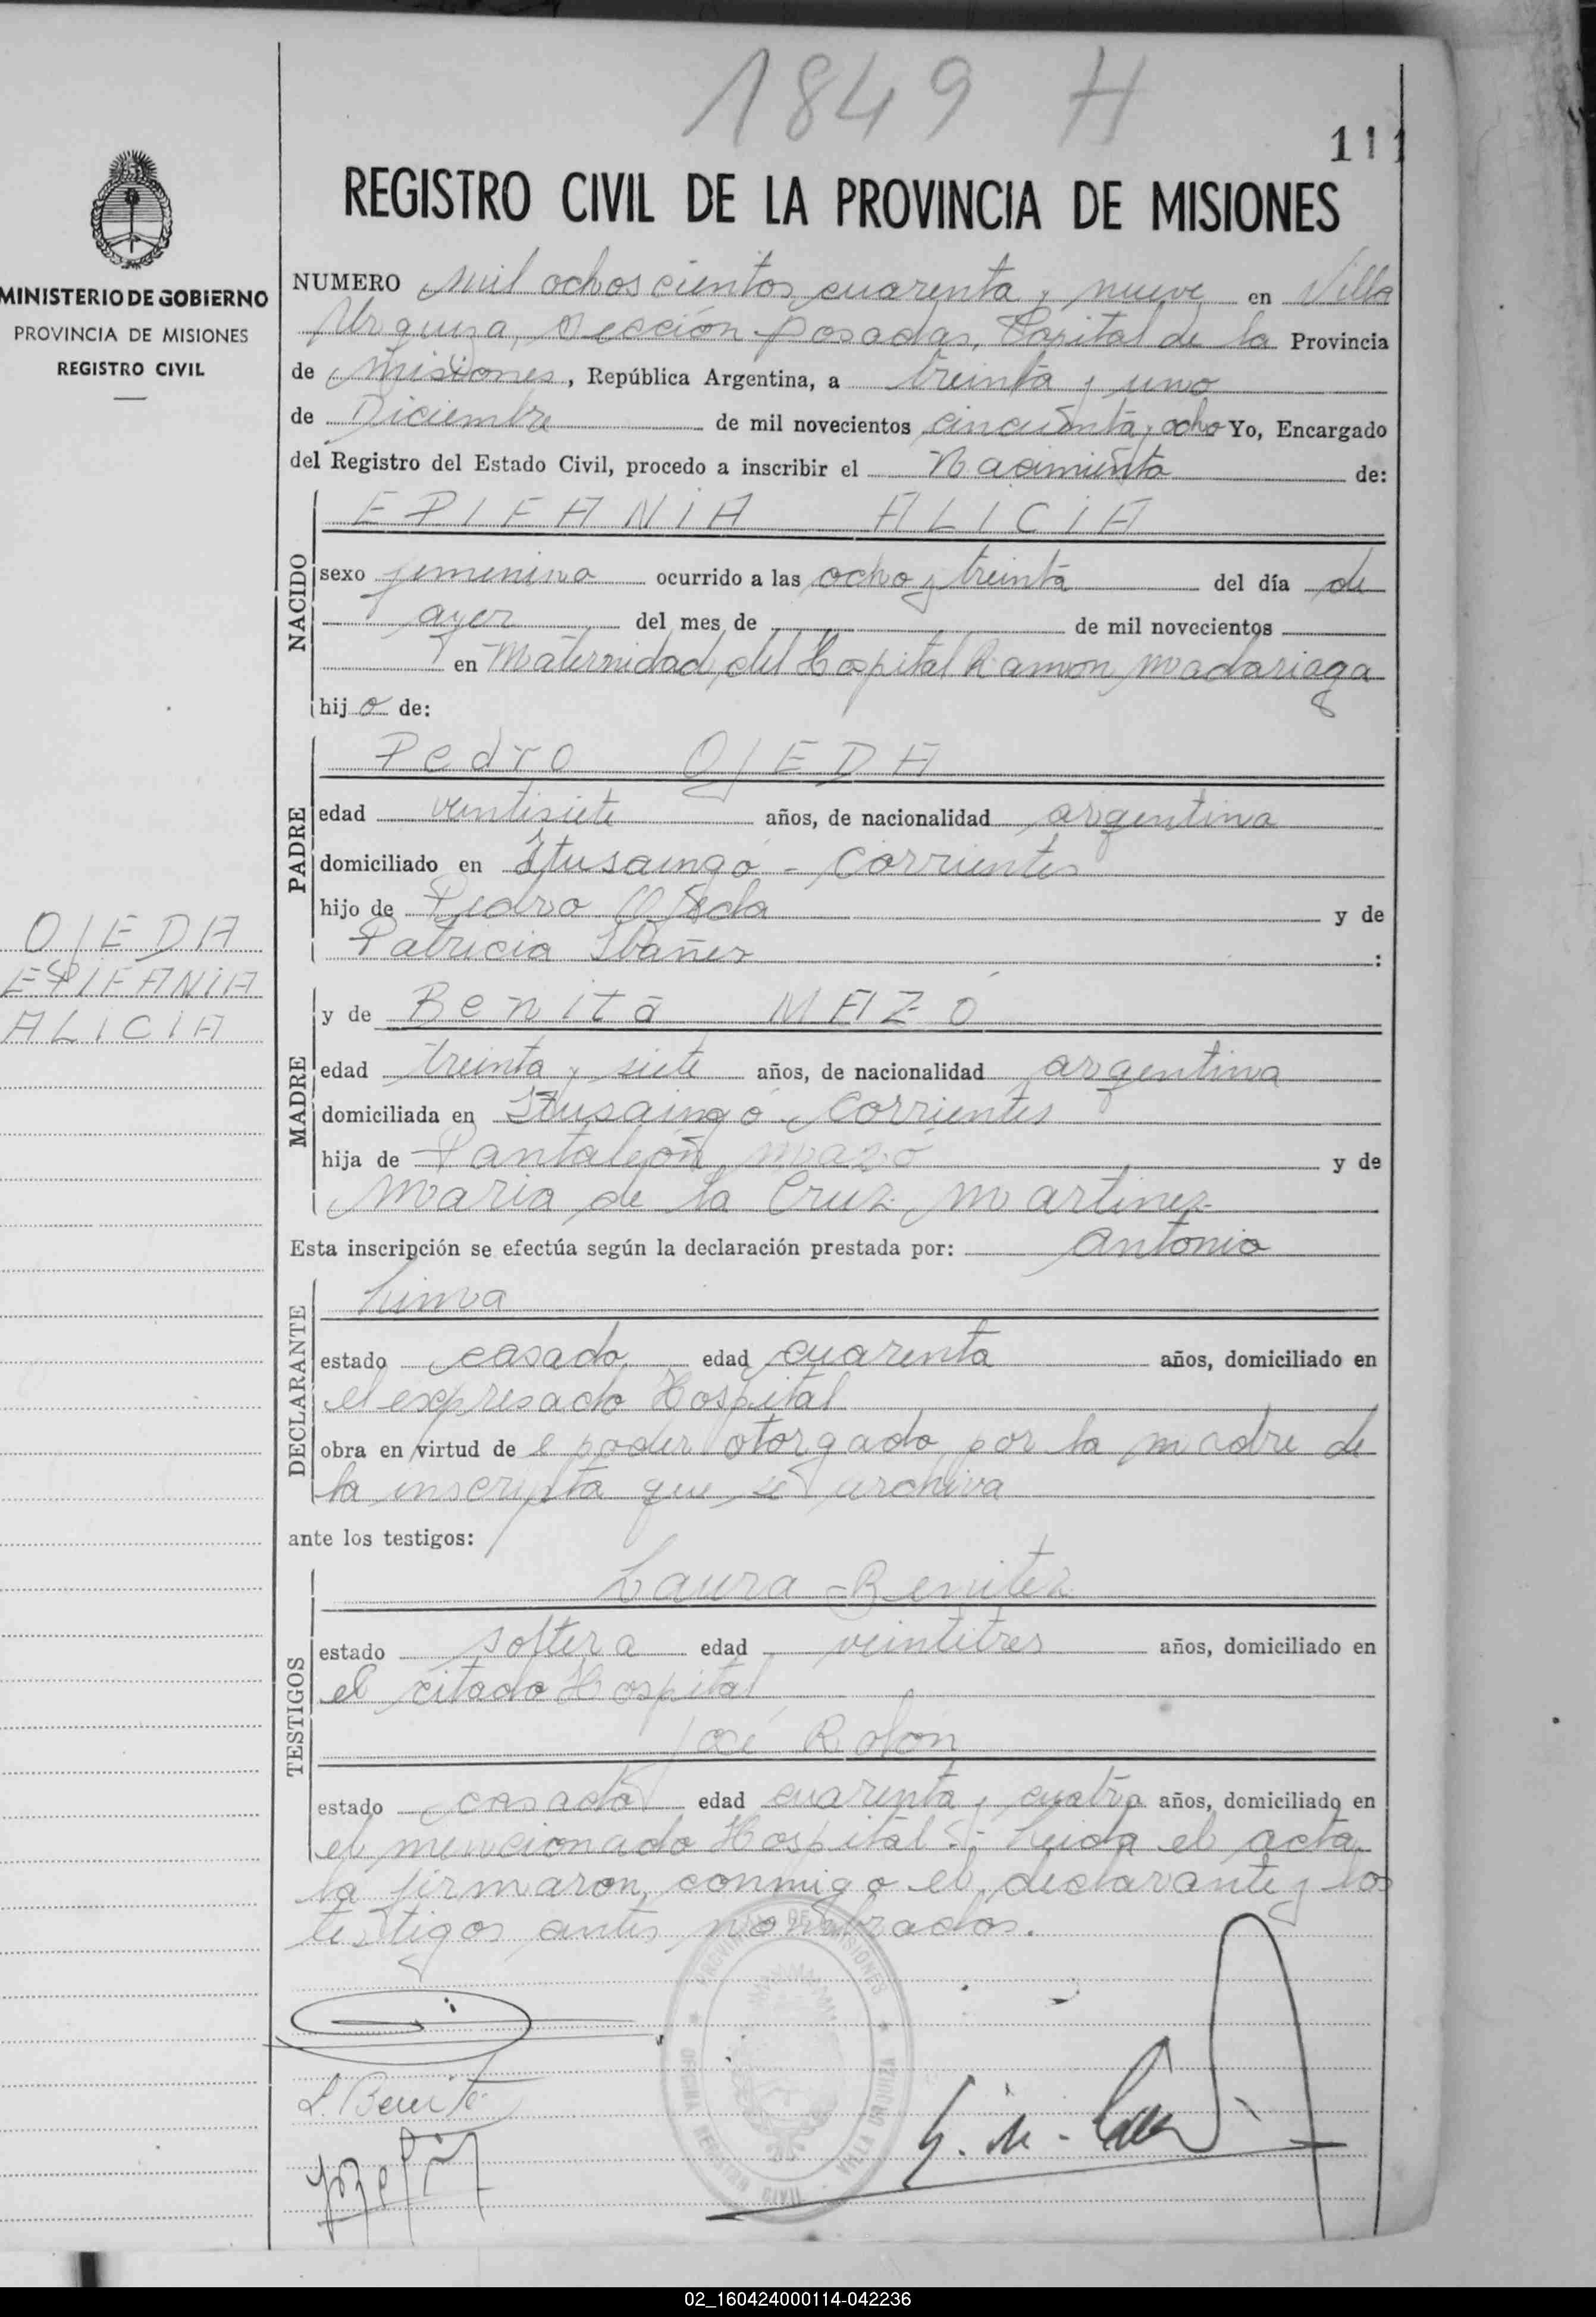 1849 H
111
REGISTRO CIVIL DE LA PROVINCIA DE MISIONES
MINISTERIO DE GOBIERNO
PROVINCIA DE MISIONES
REGISTRO CIVIL
NUMERO mil ochoscientos cuarenta y nueve en Villa
Urquiza, Sección Posadas, Capital de la Provincia
de Misiones, República Argentina, a treinta y uno
de Diciembre de mil novecientos cincuenta y ocho Yo, Encargado
del Registro del Estado Civil, procedo a inscribir el Nacimiento de:
EPIFANIA ALICIA
NACIDO
sexo femenino ocurrido a las ocho y treinta del día de
ayer del mes de de mil novecientos
en Maternidad del Hospital Ramon Madariaga
hij a de:
Pedro OJEDA
PADRE
edad veintisiete años, de nacionalidad argentina
domiciliado en Ituzaingó - Corrientes
hijo de Pedro Ojeda y de
Patricia Ibañez :
OJEDA
EPIFANIA
ALICIA
y de Benita MAZÓ
MADRE
edad treinta y siete años, de nacionalidad argentina
domiciliada en Ituzaingó - Corrientes
hija de Pantaleón Mazó y de
Maria de la Cruz Martinez
Esta inscripción se efectúa según la declaración prestada por: Antonio
DECLARANTE
estado casado edad cuarenta años, domiciliado en
el expresado Hospital
obra en virtud de e poder otorgado por la madre de
la inscripta que se archiva
ante los testigos:
Laura Benitez
TESTIGOS
estado soltera edad veintitres años, domiciliado en
el citado Hospital
José Rolon
estado casado edad cuarenta y cuatro años, domiciliado en
el mencionado Hospital.- Leida el acta
la firmaron conmigo el declarante y los
testigos antes nombrados.
PROVINCIA DE MISIONES
OFICINA REGISTRO CIVIL VILLA URQUIZA
L. Benitez
02_160424000114-042236